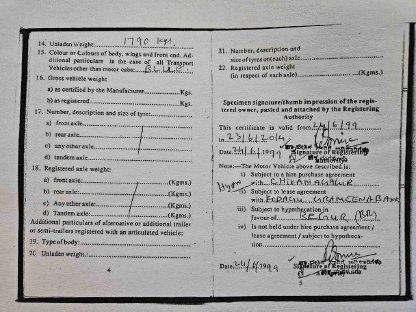 14. Unladen Weight: 1790 Kgs.
15. Colour or Colours of body, wings and front end. Ad-
ditional particulars in the case of all Transport
Vehicles other than motor cabs: BLUE
16. Gross vehicle weight
a) as certified by the Manufacturer Kgs.
b) as registered Kgs.
17. Number, description and size of tyre:
a) front axle
b) rear axle
c) any other axle
d) tandem axle
18. Registered axle weight
a) front axle: (Kgms.)
b) rear axle: (Kgms.)
c) Any other axle: (Kgms.)
d) Tandem axle: (Kgms.)
Additional particulars of alternative or additional trailer
or semi-trailers registered with an articulated vehicle:
19. Type of body:
20. Unladen weight:
4
21. Number, description and
size of tyres on (each) axle
22. Registered axle weight
(in respect of each axle) (Kgms.)
Specimen signature/thumb impression of the regis-
tered owner, pasted and attached by the Registering
Authority
This certificate is valid from 24/6/99
to 23/6/2014
Date 24/6/1999 Signature of Registering
Note:—The Motor Vehicle above described is:
i) Subject to a hire purchase agreement
with CHIKAMAGALUR
ii) Subject to lease agreement
with KODAGU GRAMEENA BANK
iii) Subject to hypothecation in
favour of BELUR (BR)
iv) Is not held under hire purchase agreement /
lease agreement / subject to hypotheca-
tion
Date: 24/6/1999 Signature of Registering
5